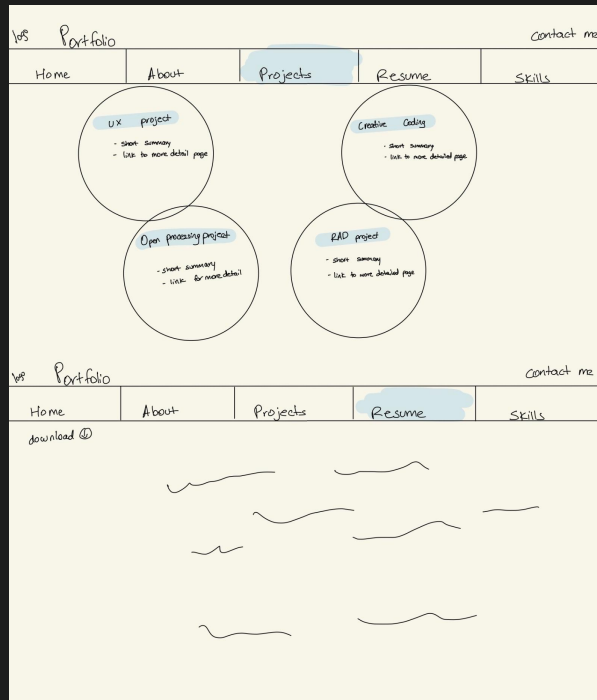 logo Portfolio Contact me
Home About Projects Resume Skills
UX project
- short summary
- link to more detail page
Creative Coding
- short summary
- link to more detailed page
Open processing project
- short summary
- link for more detail
RAD project
- short summary
- link to more detailed page
logo Portfolio Contact me
Home About Projects Resume Skills
download